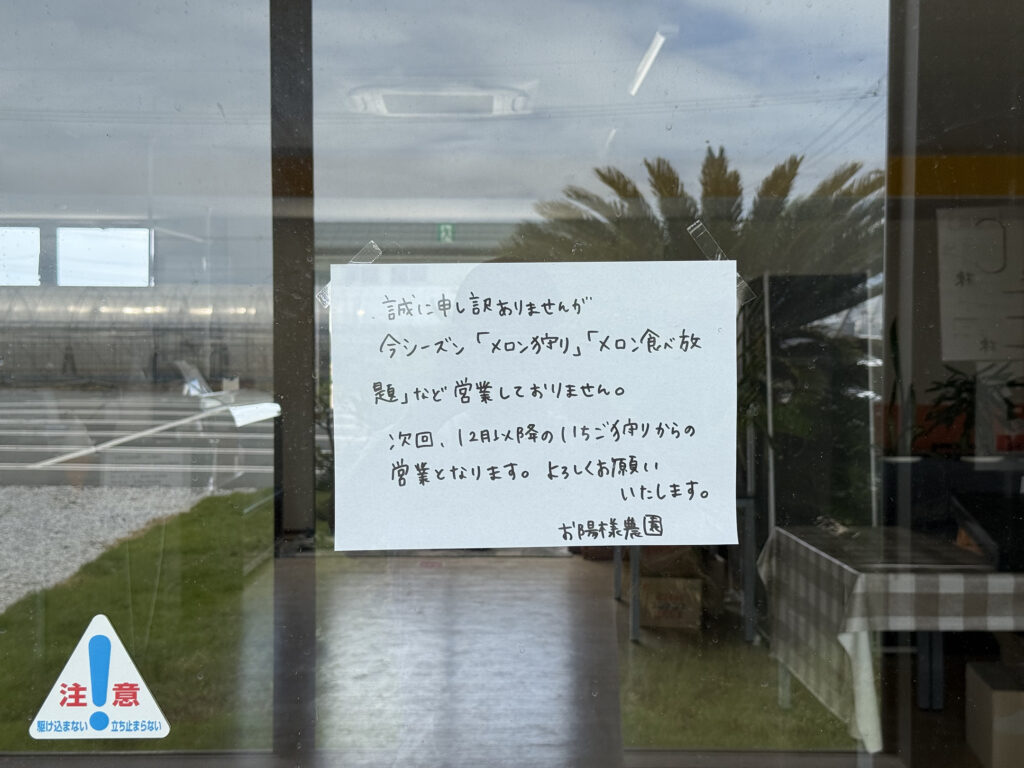 誠に申し訳ありませんが
今シーズン「メロン狩り」「メロン食べ放
題」など営業しておりません。
次回、12月以降のいちご狩りからの
営業となります。よろしくお願い
いたします。
お陽様農園
注意
駆け込まない 立ち止まらない